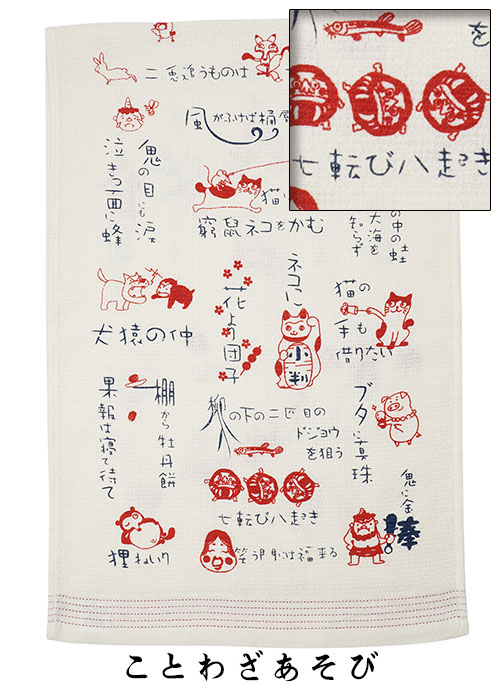 二兎追うものは
風がふけば桶
を
七転び八起き
鬼の目にも涙
泣きっ面に蜂
猫
窮鼠ネコをかむ
の中の蛙
大海を
知らず
犬猿の仲
花より団子
ネコに
小判
猫の
手も
借りたい
棚から牡丹餅
果報は寝て待て
柳の下の二匹目の
ドジョウ
を狙う
ブタに真珠
七転び八起き
鬼に金棒
狸ねいり
笑う門には福来る
ことわざあそび